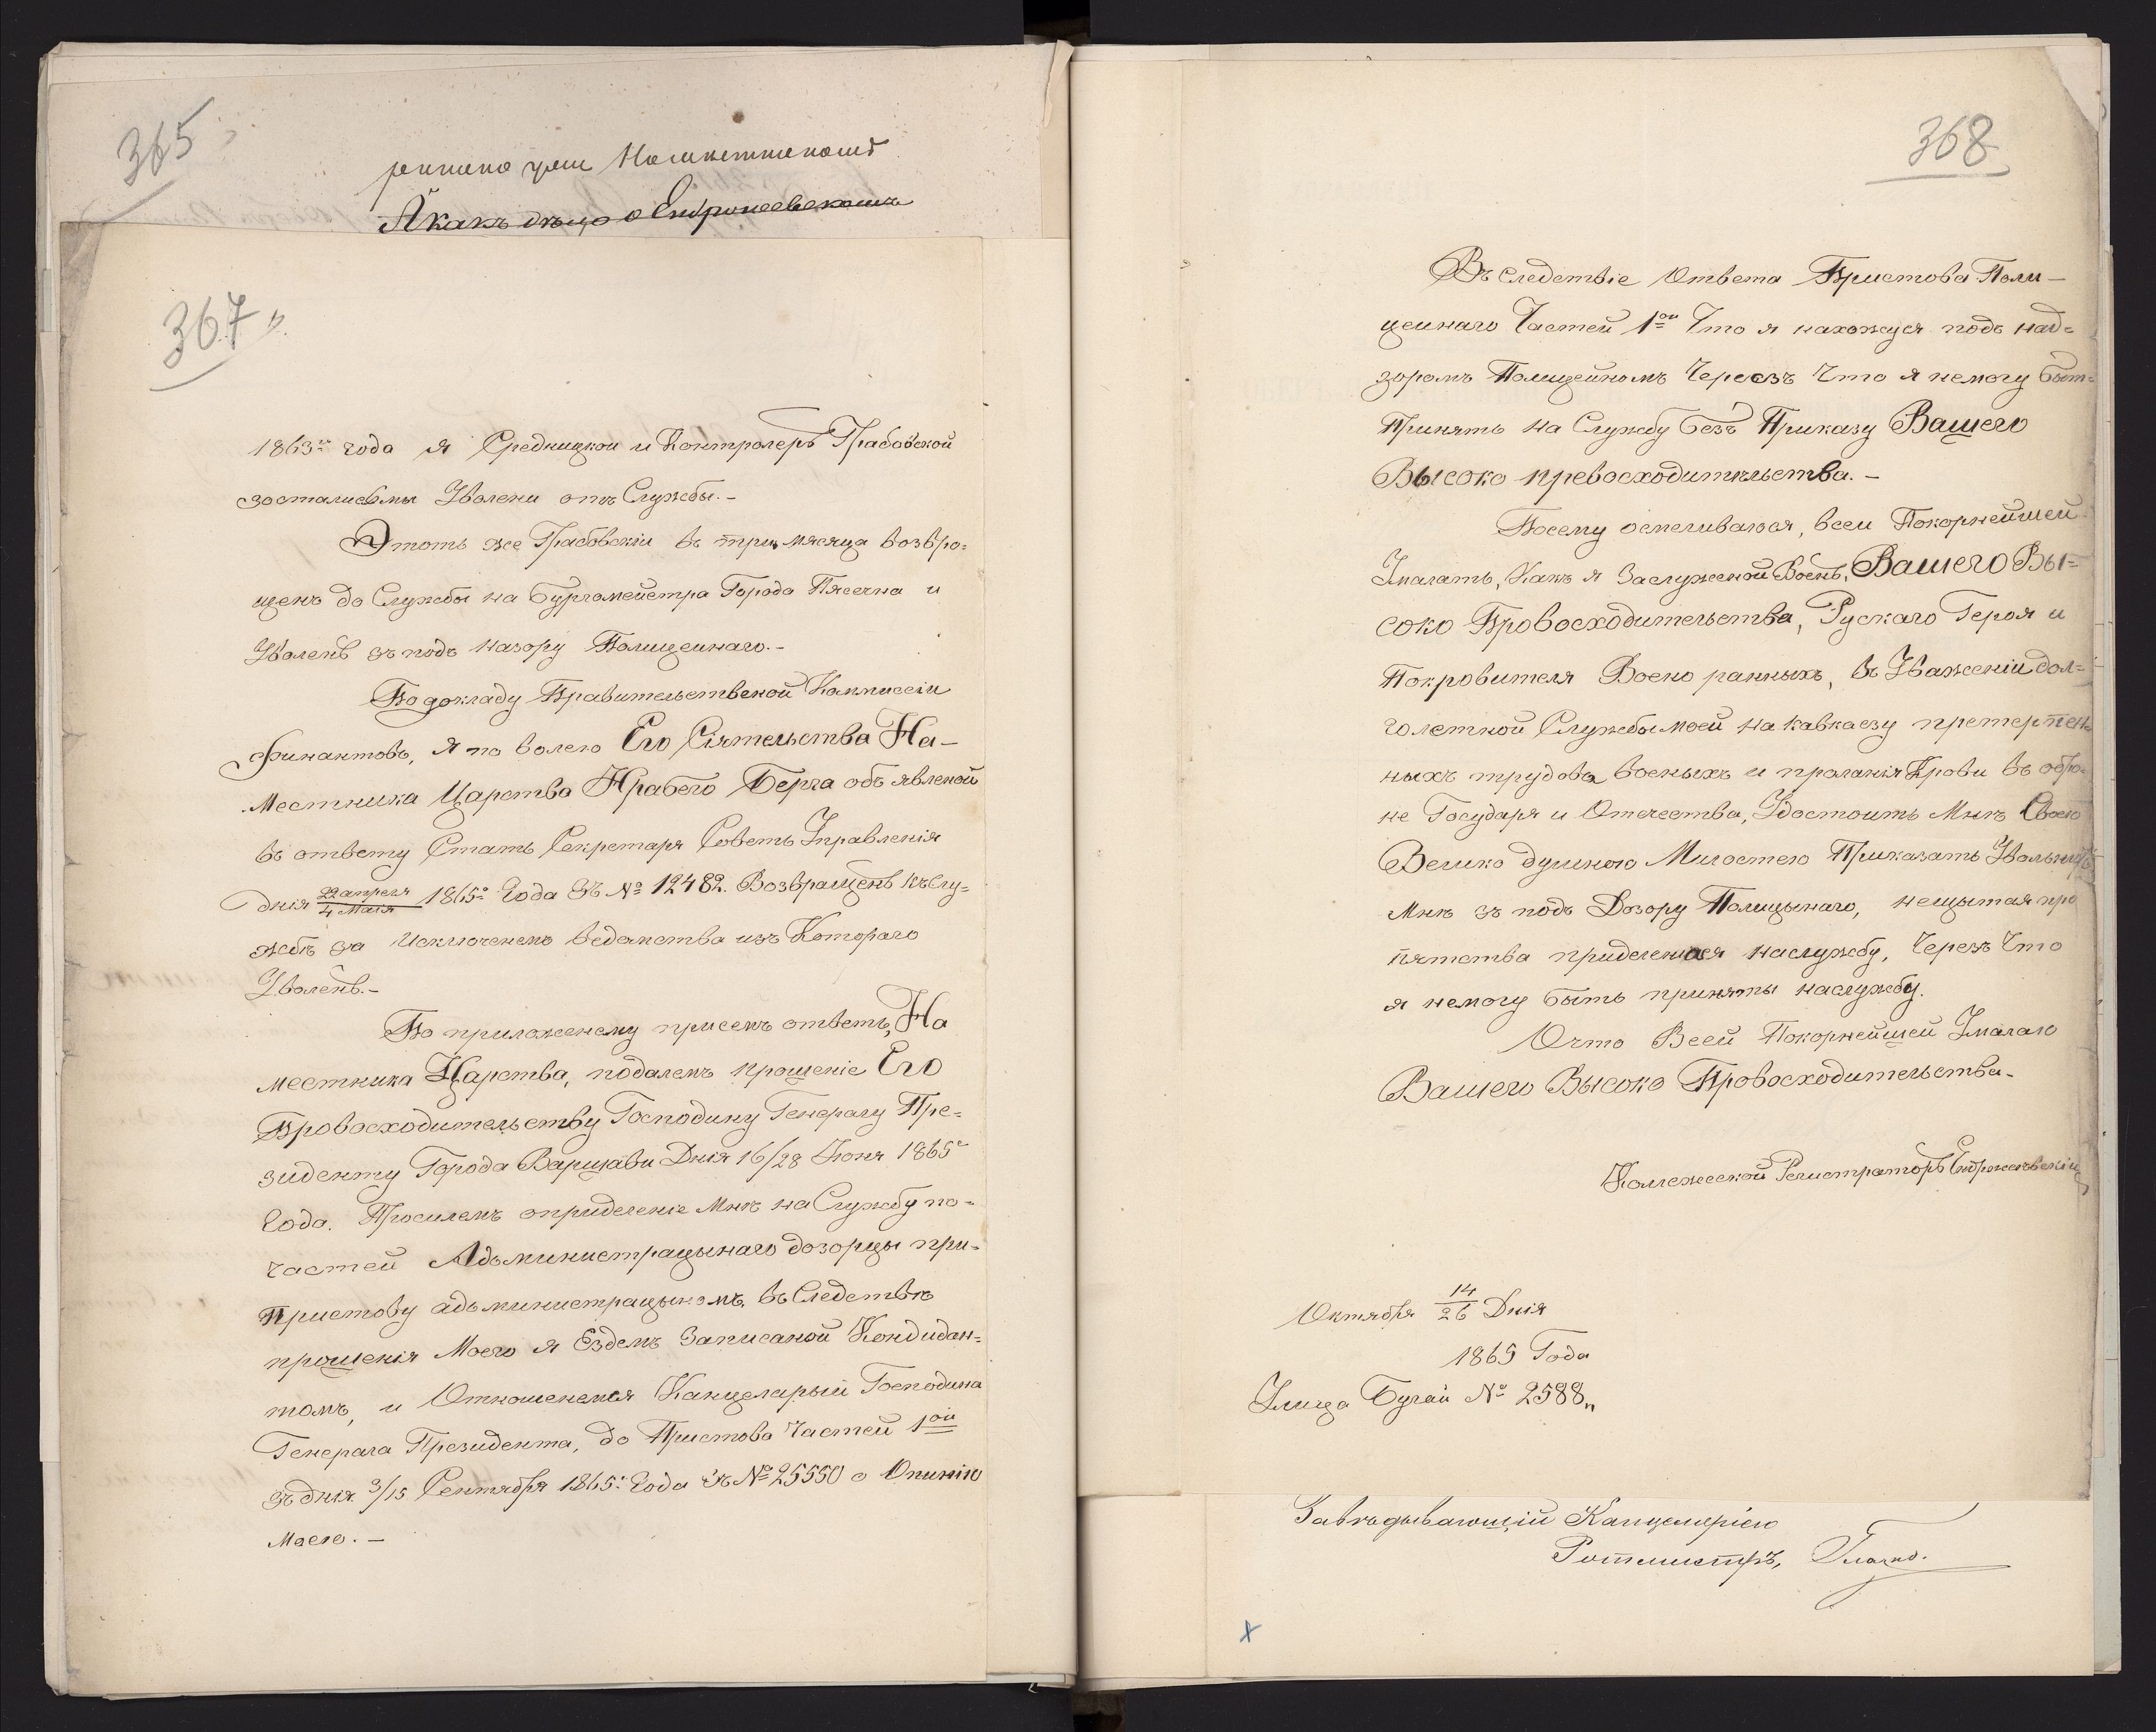 365
Нашкеттикомъ
А какъ дѣло о
367
1863го года я Средницкои и Контролеръ Грабовской
зосталисьмы Уволени отъ Службы. –
Этотъ же Грабовскіи въ три мясяца возвро=
щенъ до Службы на Бургомейстра Города Пясечна и
Уволенъ зъ подъ назору Полицеинаго. –
По докладу Правительственой Коммисеіи
Финантовъ, я по волею Его Сіятельства На–
местника Царства Нрабего Берга объявленой
въ ответу Статъ Секретаря Советъ Управленія
днія 22 апреля / 4 Маія 1865го Года Зъ № 12482. Возвращенъ къ Слу=
жбѣ за Исключенемъ ведамства изъ Котораго
Уволенъ. –
По приложенему присемъ ответъ, На
местника Царства, подалемъ прошеніе Его
Провосходительству Господину Генералу Пре=
зиденту Города Варшави Днія 16/28 Іюня 1865го
Года. Просилемъ оприделеніе Мнѣ на Службу по=
частей Адьминистрацынаго дозорцы при=
Пристову адьминистрацыномъ, въ Следствѣ
прошенія Моего я Ездемъ Записаной Кондидан=
томъ, и Отношенемся Канцеларыи Господина
Генерала Президента, до Пристова Частей 1ой
зъ днія 3/15 Сентября 1865го Года Зъ № 25550 о Опинію
Маею. –
368
Въ следствіе Ответа Пристова Поли–
цеинаго Частей 1ои Что я нахожуся подъ над=
зоромъ Полицейномъ Черезъ Что я немогу быт=
Принять на Службу безъ Приказу Вашего
Высоко превосходительства. –
Посему осмеливаюся, всеи Покорнейшей
Умалать, Какъ я Заслуженой Военъ, Вашего Вы=
соко Провосходительства, Рускаго Героя и
Покровителя Воено ранныхъ, въ Уваженіи дол=
голетной Службы моей на Кавкаезу претерпен
ныхъ трудова военыхъ и проланія Крови въ обро=
не Государя и Отечества, Удостоить Мнѣ Своею
Велико душною Милостею Приказать
Мнѣ зъ подъ Дозору Полицынаго, нещытая пре
пятства приделенося наслужбу, Черезъ Что
я немогу быть приняты наслужбу.
Очто Всеи Покорнейшеи Умалаю
Вашего Высоко Провосходительства –
Колежескои Регистраторъ
Октября 14/26 Днія
1865 Года
Улица Бугай № 2588„
Завѣдывающій Канцеляріею
Ротмистръ,
x